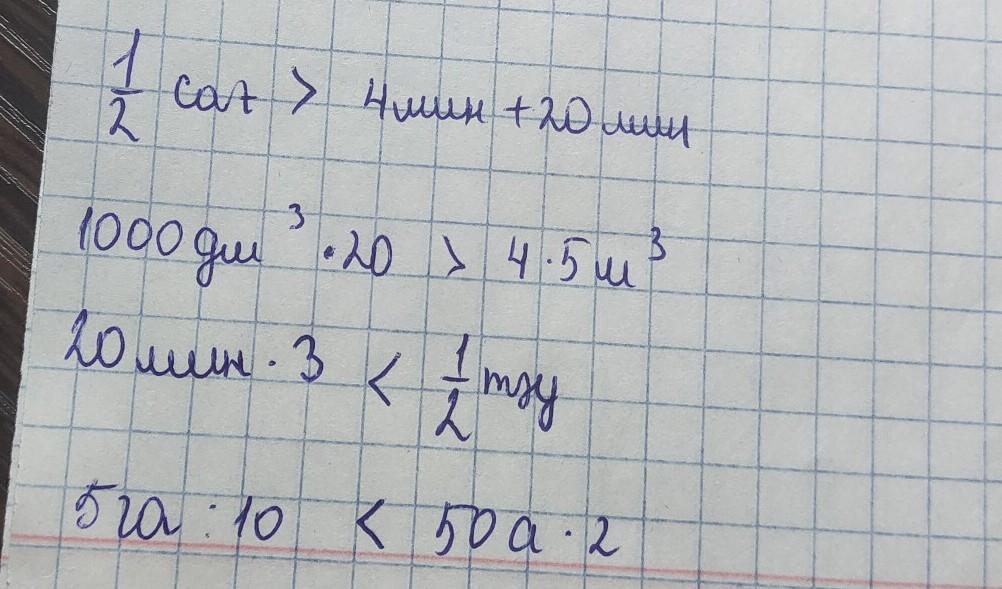 1/2 сағ > 4мин + 20 мин
1000 дм³ · 20 > 4 · 5 м³
20 мин · 3 < 1/2 тәу
5 га : 10 < 50 а · 2